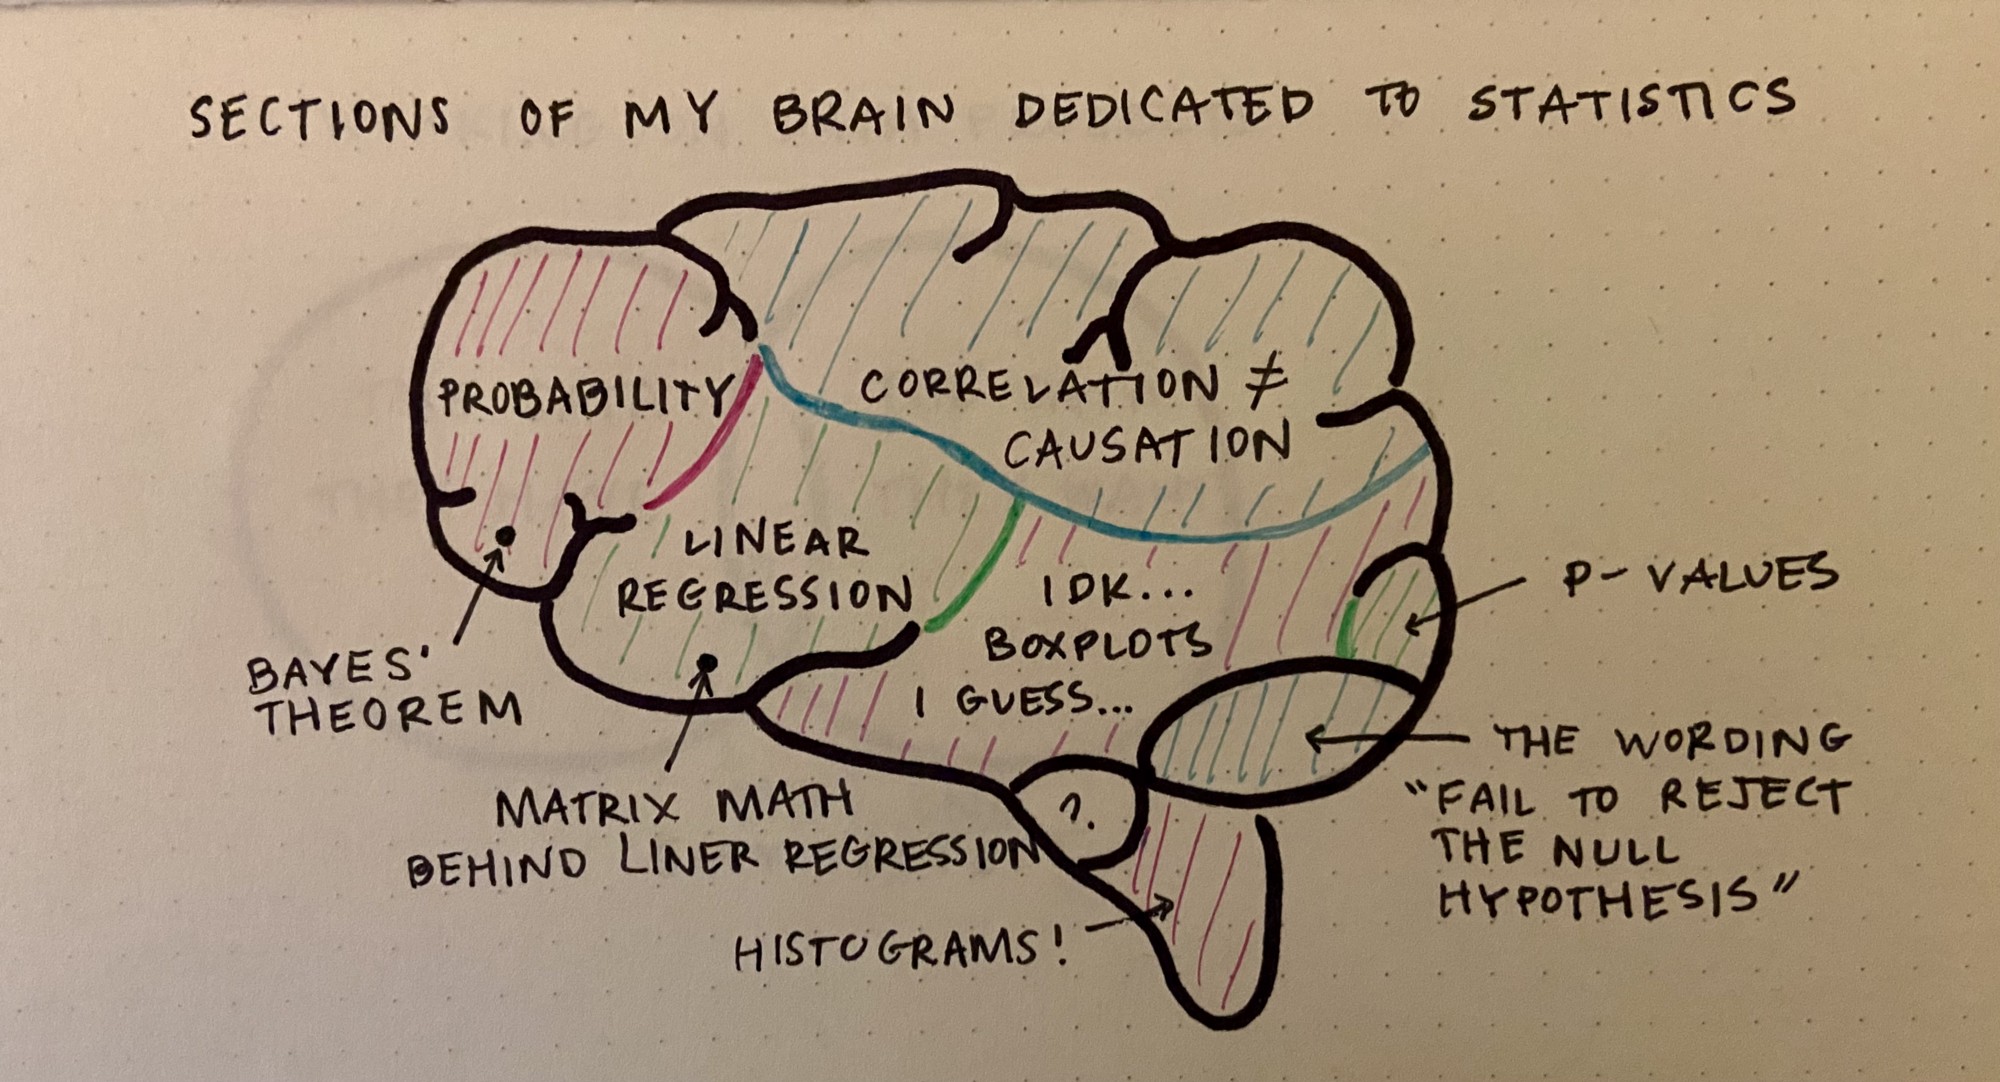 SECTIONS OF MY BRAIN DEDICATED TO STATISTICS
PROBABILITY
CORRELATION ≠
CAUSATION
LINEAR
REGRESSION
IDK...
BOXPLOTS
I GUESS...
P-VALUES
BAYES'
THEOREM
THE WORDING
"FAIL TO REJECT
THE NULL
HYPOTHESIS"
MATRIX MATH
BEHIND LINER REGRESSION
?
HISTOGRAMS!